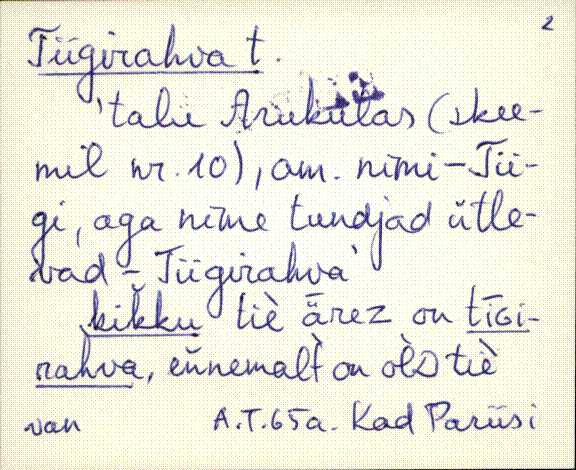 2
Tiigirahva t.
'talu Arukülas (skee-
mil nr. 10), am. nimi – Tii-
gi, aga nime tundjad ütle-
vad – Tiigirahva'
kikku tiè ärez on tīGi-
rahva, eǹnemalt on olD tiè
van A.T. 65a. Kad Pariisi